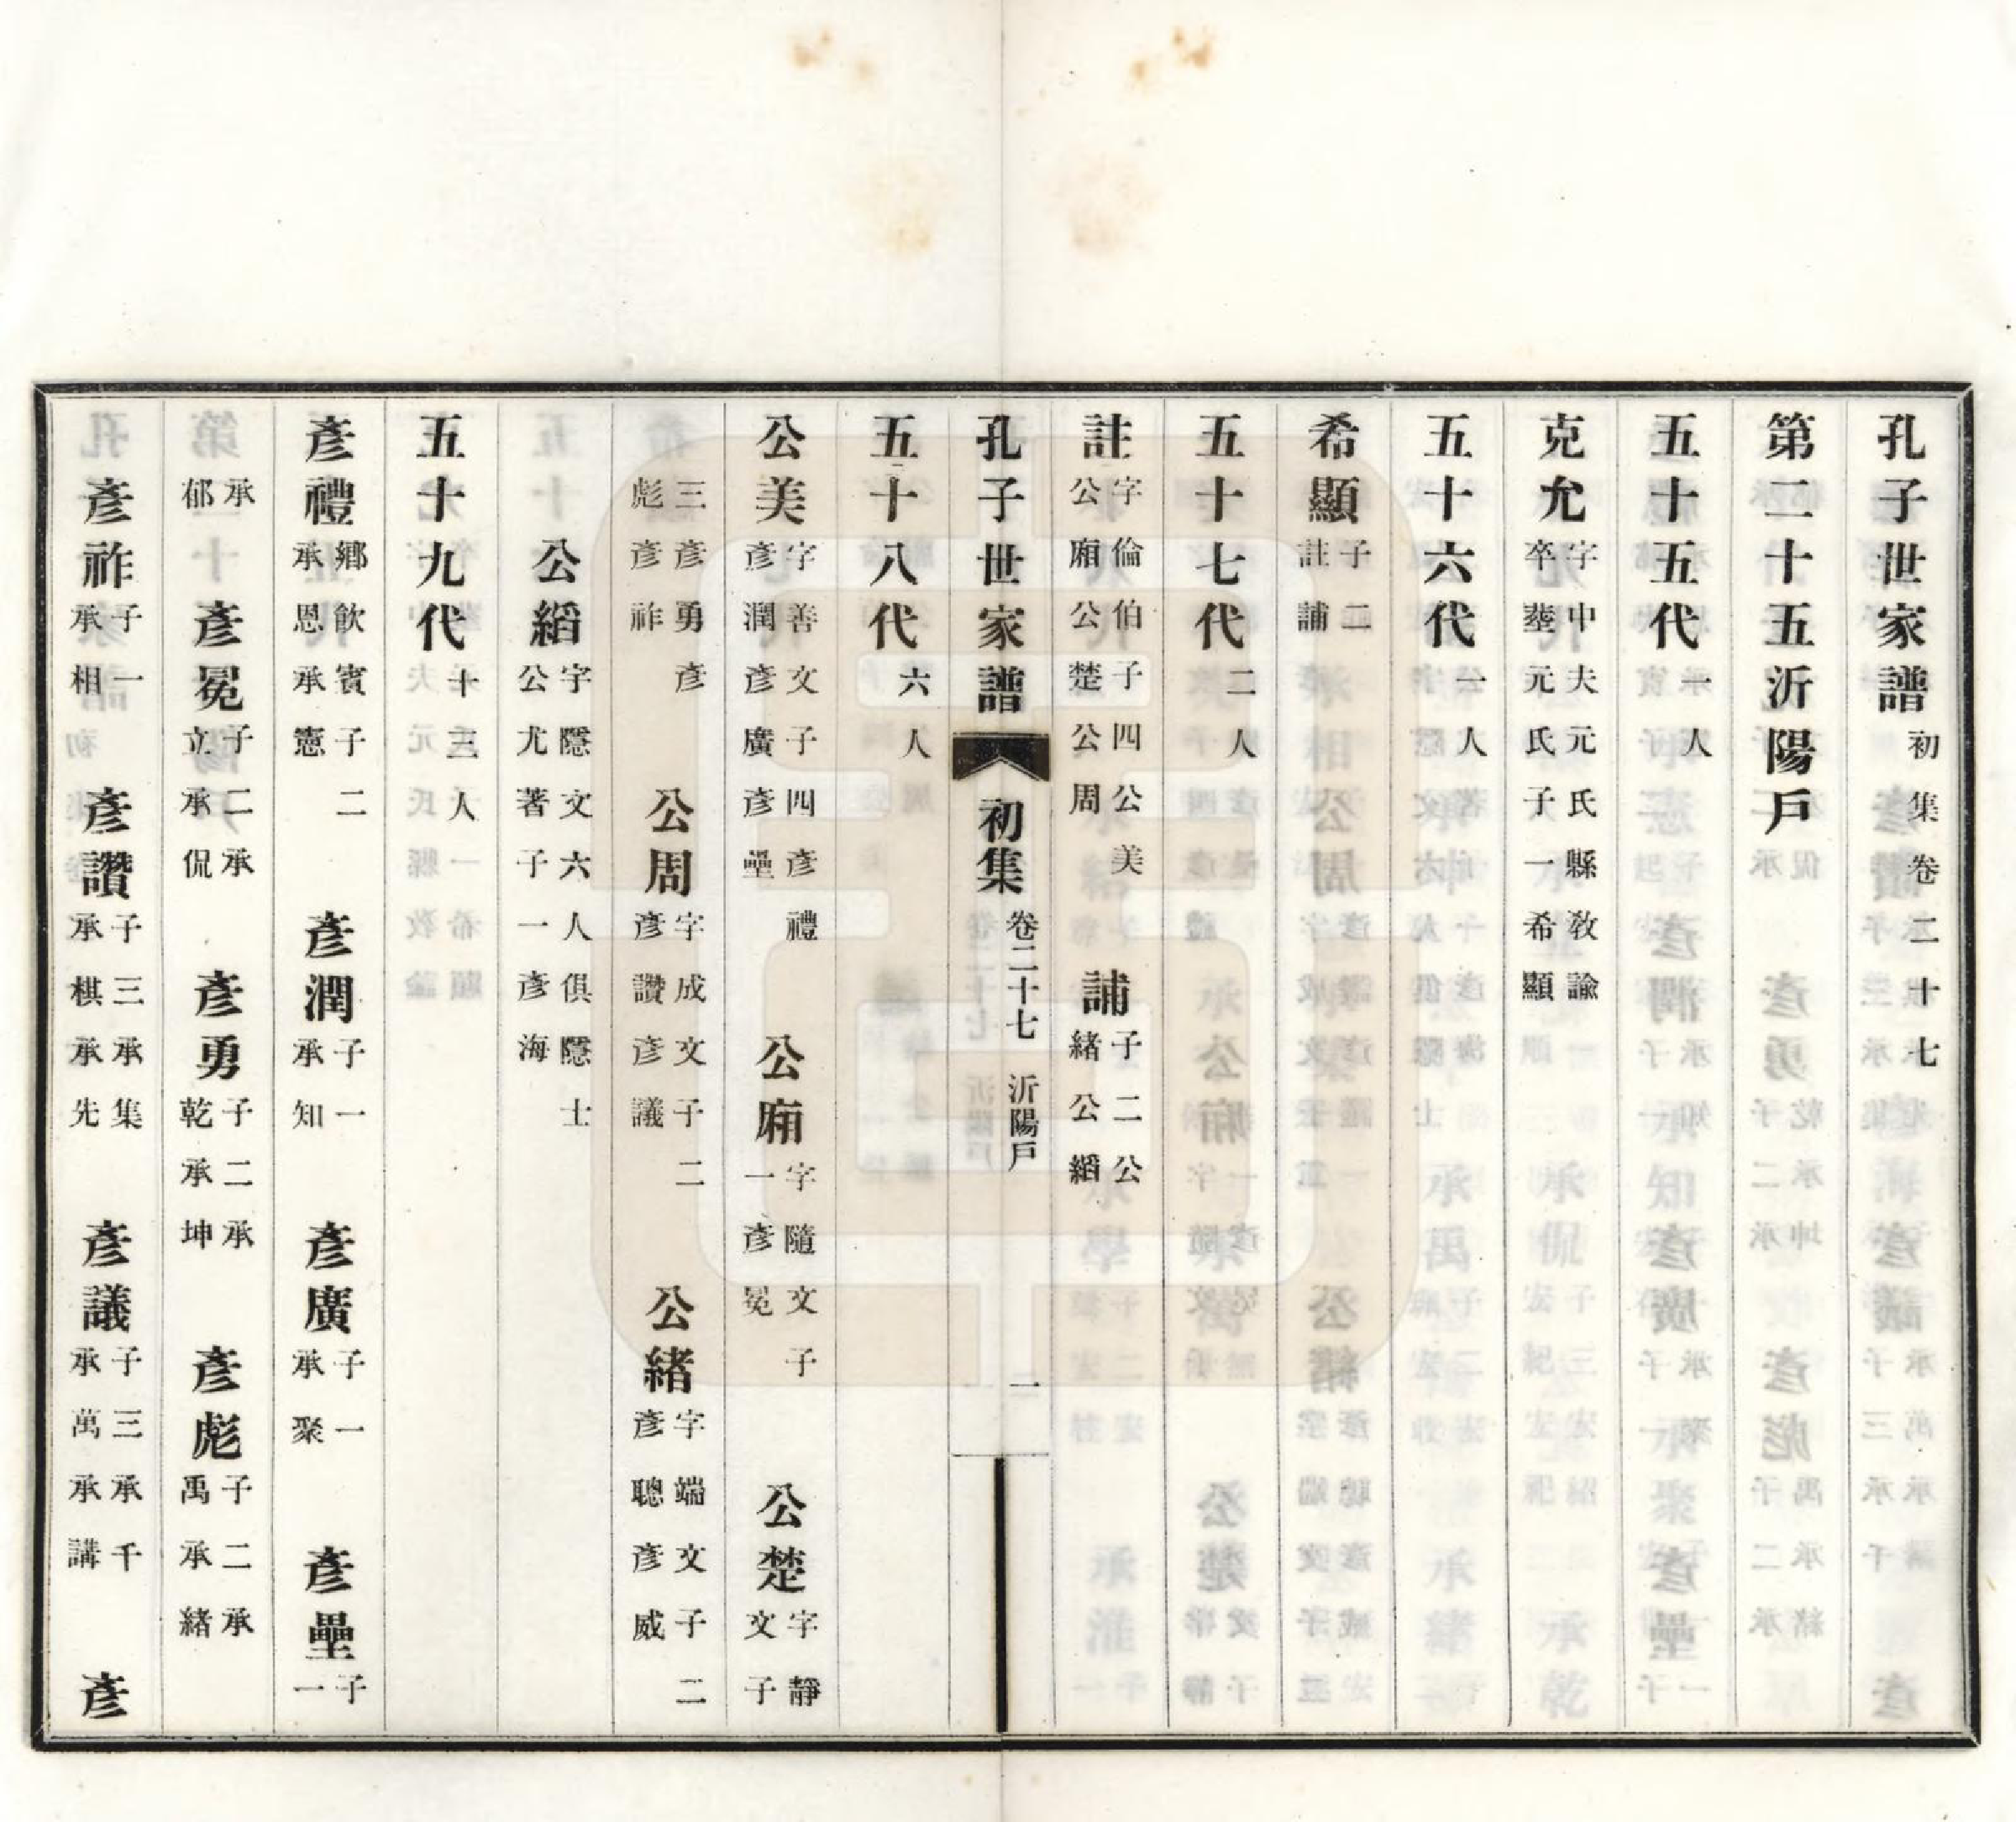 孔子世家譜初集卷二十七
第二十五沂陽戶
五十五代一人
克允字中夫元氏縣教諭卒塟元氏子一希顯
五十六代一人
希顯子二註誧
五十七代二人
註字倫伯子四公美公廂公楚公周 誧子二公緒公縚
孔子世家譜 初集 卷二十七 沂陽戶 一
五十八代六人
公美字善文子四彥禮彥潤彥廣彥壘 公廂字隨文子一彥冕 公楚字靜文子
三彥勇彥彪彥祚 公周字成文子二彥讚彥議 公緒字端文子二彥聰彥威
公縚字隱文六人俱隱士公尤著子一彥海
五十九代十三人
彥禮鄉飲賓子二承恩承憲 彥潤子一承知 彥廣子一承聚 彥壘子一
承郁 彥冕子二承立承侃 彥勇子二承乾承坤 彥彪子二承禹承緒
彥祚子一承相 彥讚子三承集承棋承先 彥議子三承千承萬承講 彥